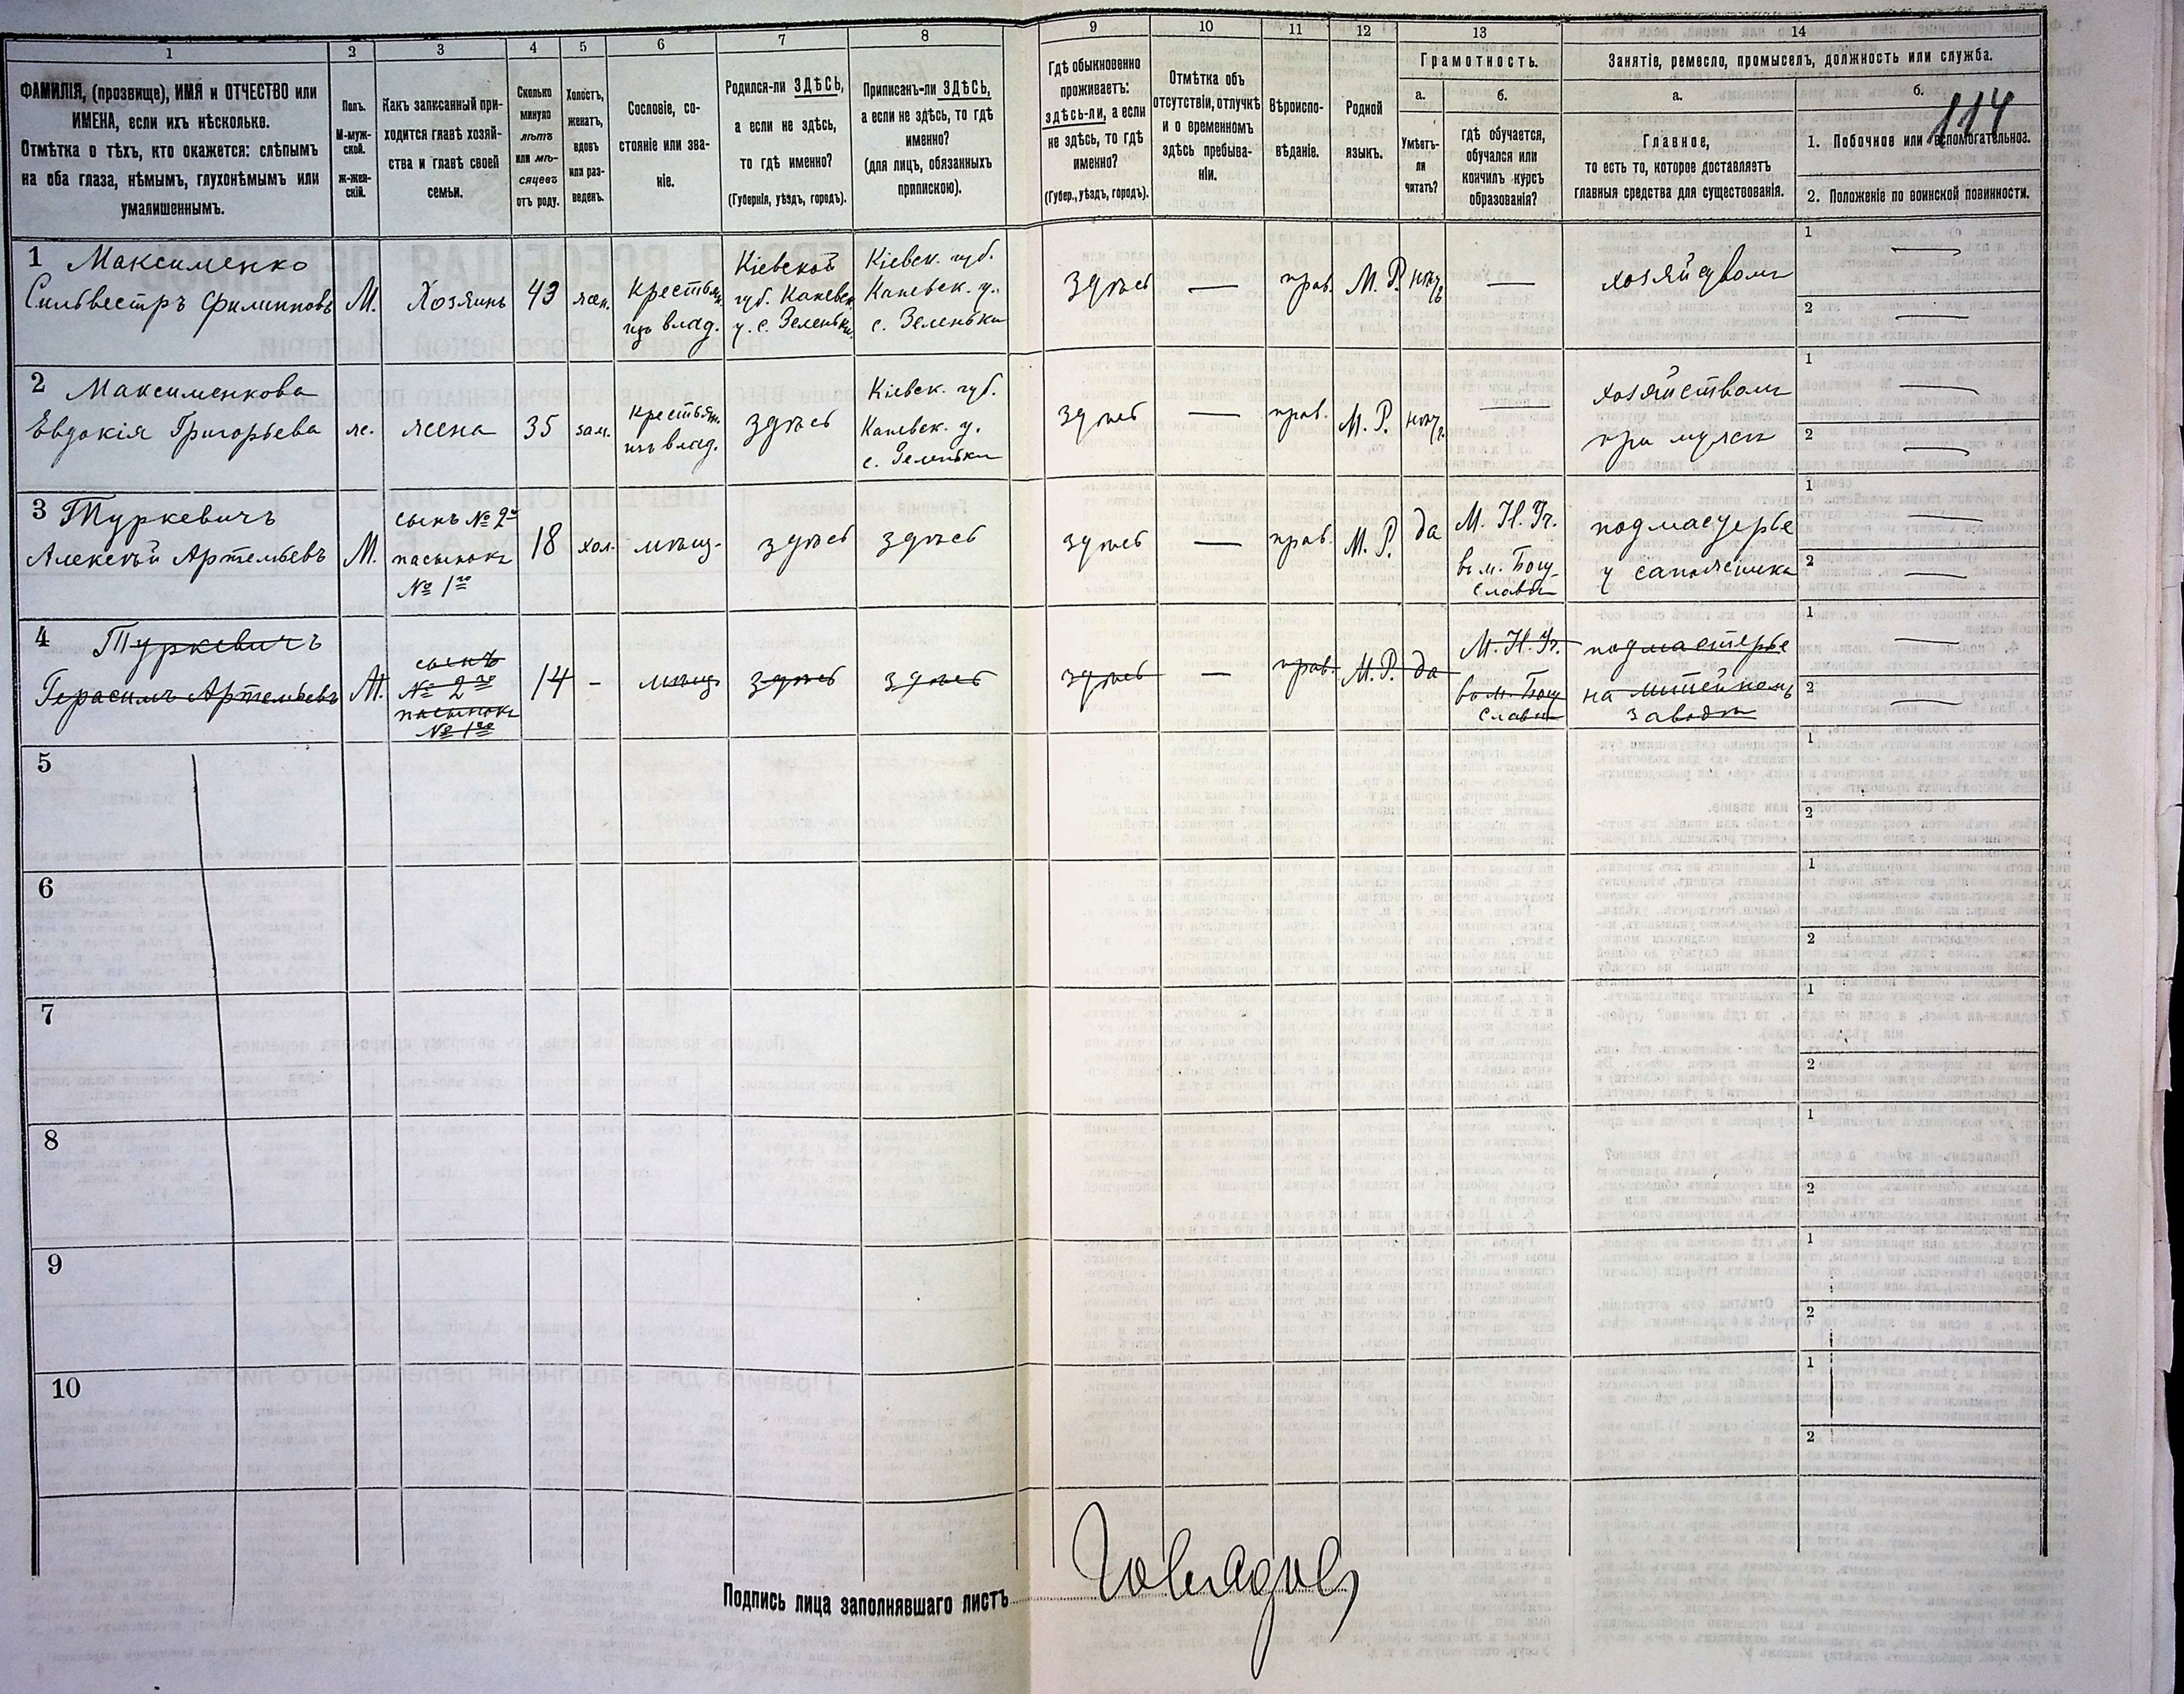 1 2 3 4 5 6 7 8 9 10 11 12 13 14
ФАМИЛІЯ, (прозвище), ИМЯ и ОТЧЕСТВО или
ИМЕНА, если ихъ нѣсколько.
Отмѣтка о тѣхъ, кто окажется: слѣпымъ
на оба глаза, нѣмымъ, глухонѣмымъ или
умалишеннымъ.
Полъ.
М-муж-
ской.
ж-жен-
скій.
Какъ записанный при-
ходится главѣ хозяй-
ства и главѣ своей
семьи.
Сколько
минуло
лѣтъ
или мѣ-
сяцевъ
отъ роду.
Холостъ,
женатъ,
вдовъ
или раз-
веденъ.
Сословіе, со-
стояніе или зва-
ніе.
Родился-ли ЗДѢСЬ,
а если не здѣсь,
то гдѣ именно?
(Губернія, уѣздъ, городъ).
Приписанъ-ли ЗДѢСЬ,
а если не здѣсь, то гдѣ
именно?
(для лицъ, обязанныхъ
припискою).
Гдѣ обыкновенно
проживаетъ:
здѣсь-ли, а если
не здѣсь, то гдѣ
именно?
(Губер., уѣздъ, городъ).
Отмѣтка объ
отсутствіи, отлучкѣ
и о временномъ
здѣсь пребыва-
ніи.
Вѣроиспо-
вѣданіе.
Родной
языкъ.
Грамотность.
а.
Умѣетъ-
ли
читать?
б.
гдѣ обучается,
обучался или
кончилъ курсъ
образованія?
Занятіе, ремесло, промыселъ, должность или служба.
а.
Главное,
то есть то, которое доставляетъ
главныя средства для существованія.
б.
114
1. Побочное или вспомогательное.
2. Положеніе по воинской повинности.
1 Максименко
Сильвестръ Филипповъ
М.
Хозяинъ
43
жен.
Крестьян.
изъ влад.
Кіевской
губ. Каневск.
у. с. Зеленьки
Кіевск. губ.
Каневск. у.
с. Зеленьки
здѣсь
—
прав.
М. Р.
нѣтъ
—
хозяйством
1 —
2 —
2 Максименкова
Евдокія Григорьева
ж.
жена
35
зам.
крестьян.
изъ влад.
здѣсь
Кіевск. губ.
Каневск. у.
с. Зеленьки
здѣсь
—
прав.
М. Р.
нѣтъ
—
хозяйством
при муже
1 —
2 —
3 Туркевичъ
Алексѣй Артемьевъ
М.
сынъ № 2го
пасынокъ
№ 1го
18
хол.
мѣщ.
здѣсь
здѣсь
здѣсь
—
прав.
М. Р.
да
М. Н. Уч.
въ м. Богу-
славѣ
подмастерье
у сапожника
1 —
2 —
4 Туркевичъ
Герасимъ Артемьевъ
М.
сынъ
№ 2го
пасынокъ
№ 1го
14
-
мѣщ.
здѣсь
здѣсь
здѣсь
—
прав.
М. Р.
да
М. Н. Уч.
въ м. Богу
славѣ
подмастерье
на литейномъ
заводѣ
1 —
2 —
5
1
2
6
1
2
7
1
2
8
1
2
9
1
2
10
1
2
Подпись лица заполнявшаго листъ